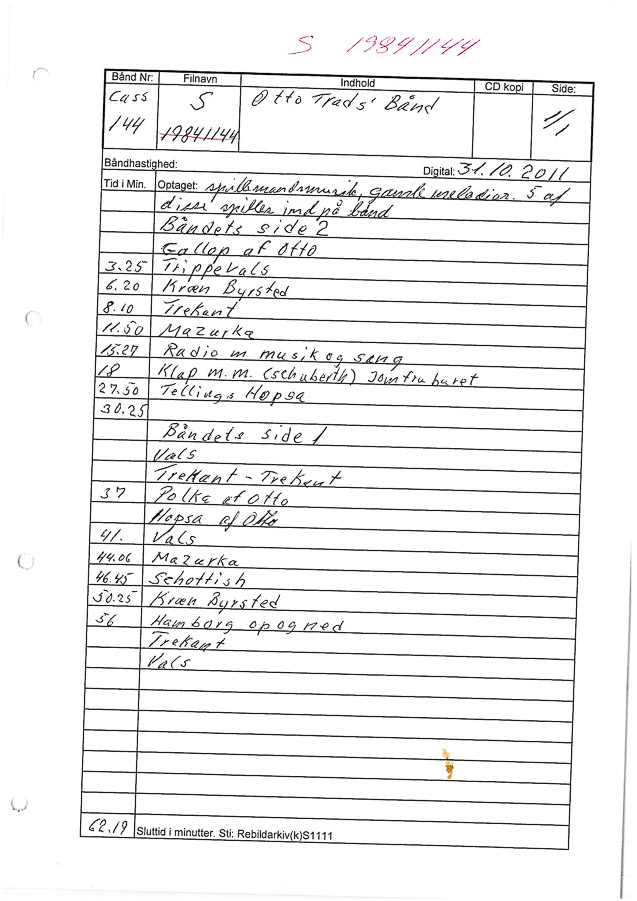 S 19841144
Bånd Nr: Filnavn Indhold CD kopi Side:
Cass S Otto Trads' Bånd 1/1
144 19841144
Båndhastighed: Digital: 31.10.2011
Tid i Min. Optaget: spillemandsmusik, gamle melodier. 5 af
disse spilles ind på bånd
Båndets side 2
Gallop af Otto
3.25 Trippevals
6.20 Kræn Byrsted
8.10 Trekant
11.50 Mazurka
15.27 Radio m musik og sang
18 Klap m.m. (Schuberth) Jomfruburet
27.50 Tellings Hopsa
30.25
Båndets side 1
Vals
Trekant - Trekant
37 Polka af Otto
Hopsa af Otto
41. Vals
44.06 Mazurka
46.45 Schottish
50.25 Kræn Byrsted
56 Hamborg op og ned
Trekant
Vals
62.19 Sluttid i minutter. Sti: Rebildarkiv(k)S1111